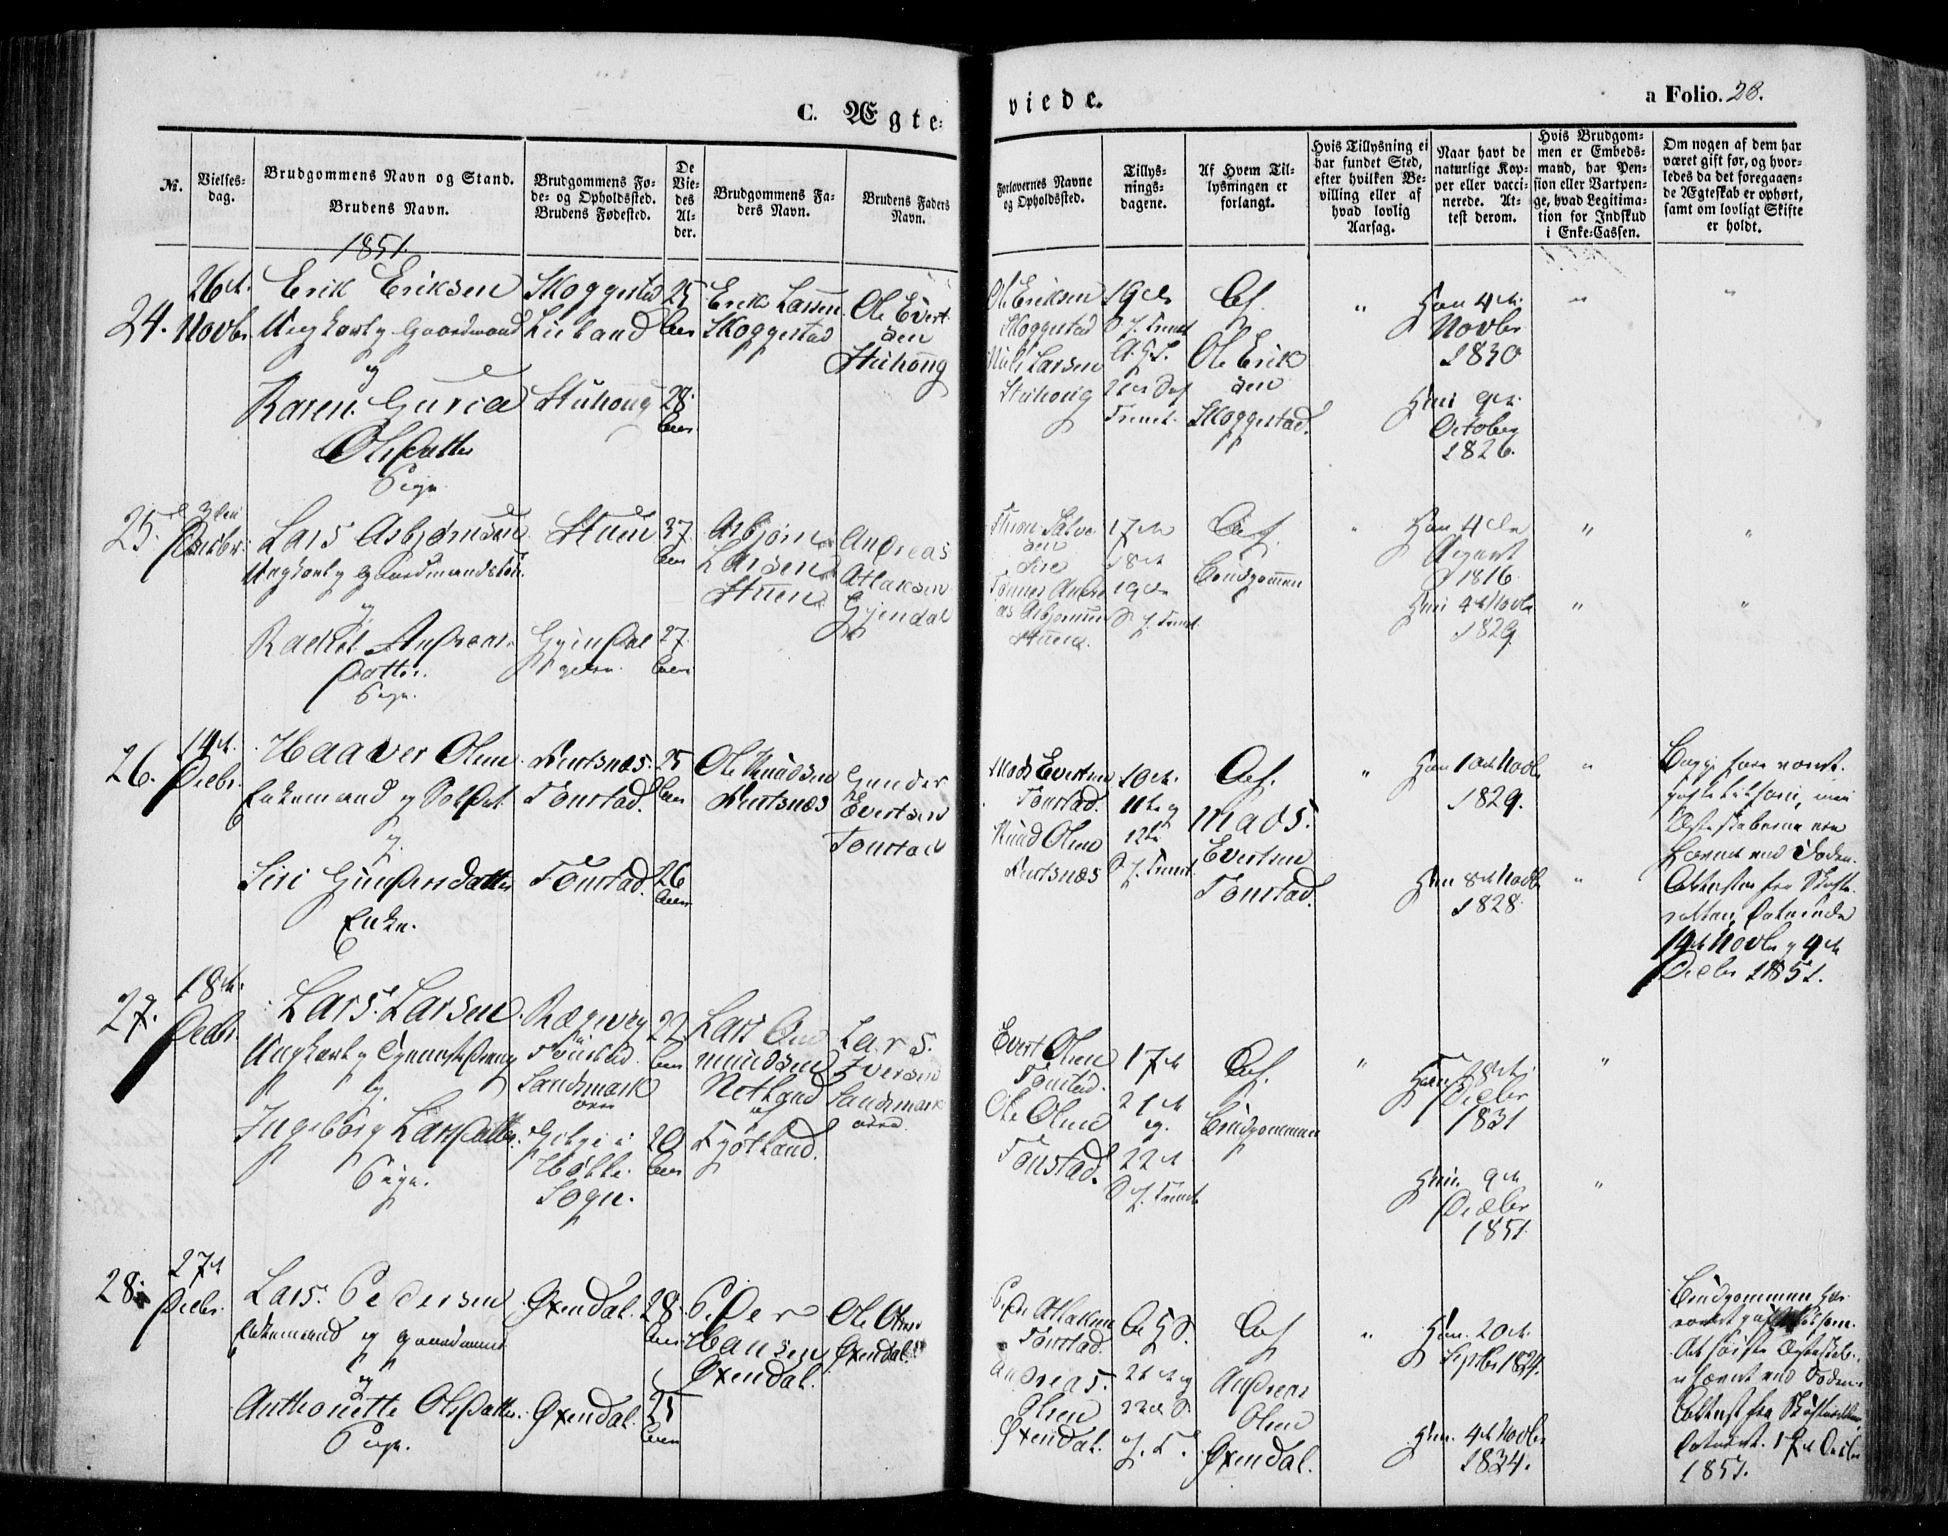 C. Ægte-
viede.
a Folio. 28.
No.
Vielses-
dag.
Brudgommens Navn og Stand.
Brudens Navn.
Brudgommens Fø-
de- og Opholdssted.
Brudens Fødested.
De
Vie-
des
Al-
der.
Brudgommens Fa-
ders Navn.
Brudens Faders
Navn.
Forlovernes Navne
og Opholdssted.
Tillys-
nings-
dagene.
Af Hvem Til-
lysningen er
forlangt.
Hvis Tillysning ei
har fundet Sted,
efter hvilken Be-
villing eller af
hvad lovlig
Aarsag.
Naar havt de
naturlige Kop-
per eller vacci-
nerede. At-
test derom.
Hvis Brudgom-
men er Embeds-
mand, har Pen-
sion eller Vartpen-
ge, hvad Legitima-
tion for Indskud
i Enke-Cassen.
Om nogen af dem har
været gift før, og hvor-
ledes da det foregaaen-
de Ægteskab er ophørt,
samt om lovligt Skifte
er holdt.
1851.
24.
26de
Novbr
Erik Eriksen
Ungkarl og Gaardmand
og
Karen Guria
Olsdatter
Pige
Skoggestad
Lieland
Stuhoug
25
Aar
28
Aar
Erik Larsen
Skoggestad
Ole Evert
sen
Stuhoug
Ole Eriksen
Skoggestad
Niels Larsen
Stuhoug
19de
S. f. Trinit
A. G. S.
21de S. ef
Trinit.
Af
Ole Erik
sen
Skoggestad.
"
Han 4de
Novbr
1830
Hun 9de
October
1826.
"
"
25.
3die
Decbr.
Lars Asbjørnsen
Ungkarl og Gaardmandssøn.
og
Rachel Andreas
datter.
Pige.
Stuen
Gyendal
37
Aar
27
Aar
Asbjørn
Larsen
Stuen
Andreas
Atlaksen
Gyendal
17de
18de
19de
S. f. Trinit.
Af
Brudgommen
"
Han 4de
August
1816
Hun 4de Novbr
1829.
"
"
26.
14de
Decbr.
Haaver Olsen
Enkemand og Soldat
og
Siri Gundersdatter
Enke.
Tonstad.
Tonstad.
25
Aar
26
Aar
Ole Knudsen
Gunder
Evertsen
Tonstad
Mads Evertsen
Tonstad.
Knud Olsen
10de
11te og
12te
S. f. Trinit
Af
Mads
Evertsen
Tonstad.
"
Han 10de Novbr
1829.
Hun 8de Novbr
1828.
"
"
Begge have været
Ægteskaberne ere
hævet ved Døden.
Attester fra Skifte-
retten, daterede
14de Novbr og 4de
Decbr 1851.
27.
18de
Decbr.
Lars Larsen
Ungkarl og Tjenestedreng
og
Ingeborg Larsdatter.
Pige.
Tonstad.
Sandsmark
øvre
Sogn.
22
Aar
20
Aar
Lars Om
mundsen
Netland
Fjotland.
Lars
Iversen
Sandsmark
øvre.
Evert Olsen
Tonstad.
Ole Olsen
Tonstad.
17de
21de
og
22de
S. f. Trinit
Af
Brudgommen
"
Han 8de
Decbr
1831
Hun 9de
Decbr
1851.
"
"
28.
27de
Decbr.
Lars Pedersen
Enkemand og Gaardmand
og
Anthonette Olsdatter.
Pige.
Øxendal.
Øxendal.
28
Aar
25
Aar
Peder
Hansen
Øxendal.
Ole Olsen
Øxendal
Peder Atlaksen
Tonstad.
Andreas
Olsen
Øxendal.
A G S.
21de og
22de S.
ef. T.
Af
Andreas
Olsen
Øxendal.
"
Han 20de
Septbr 1824.
Hun 4de Novbr
1824.
Brudgommen har
været gift
Ægteskab
er hævet ved Døden
Attest fra Skifteretten
dateret 17de Decbr
1851.